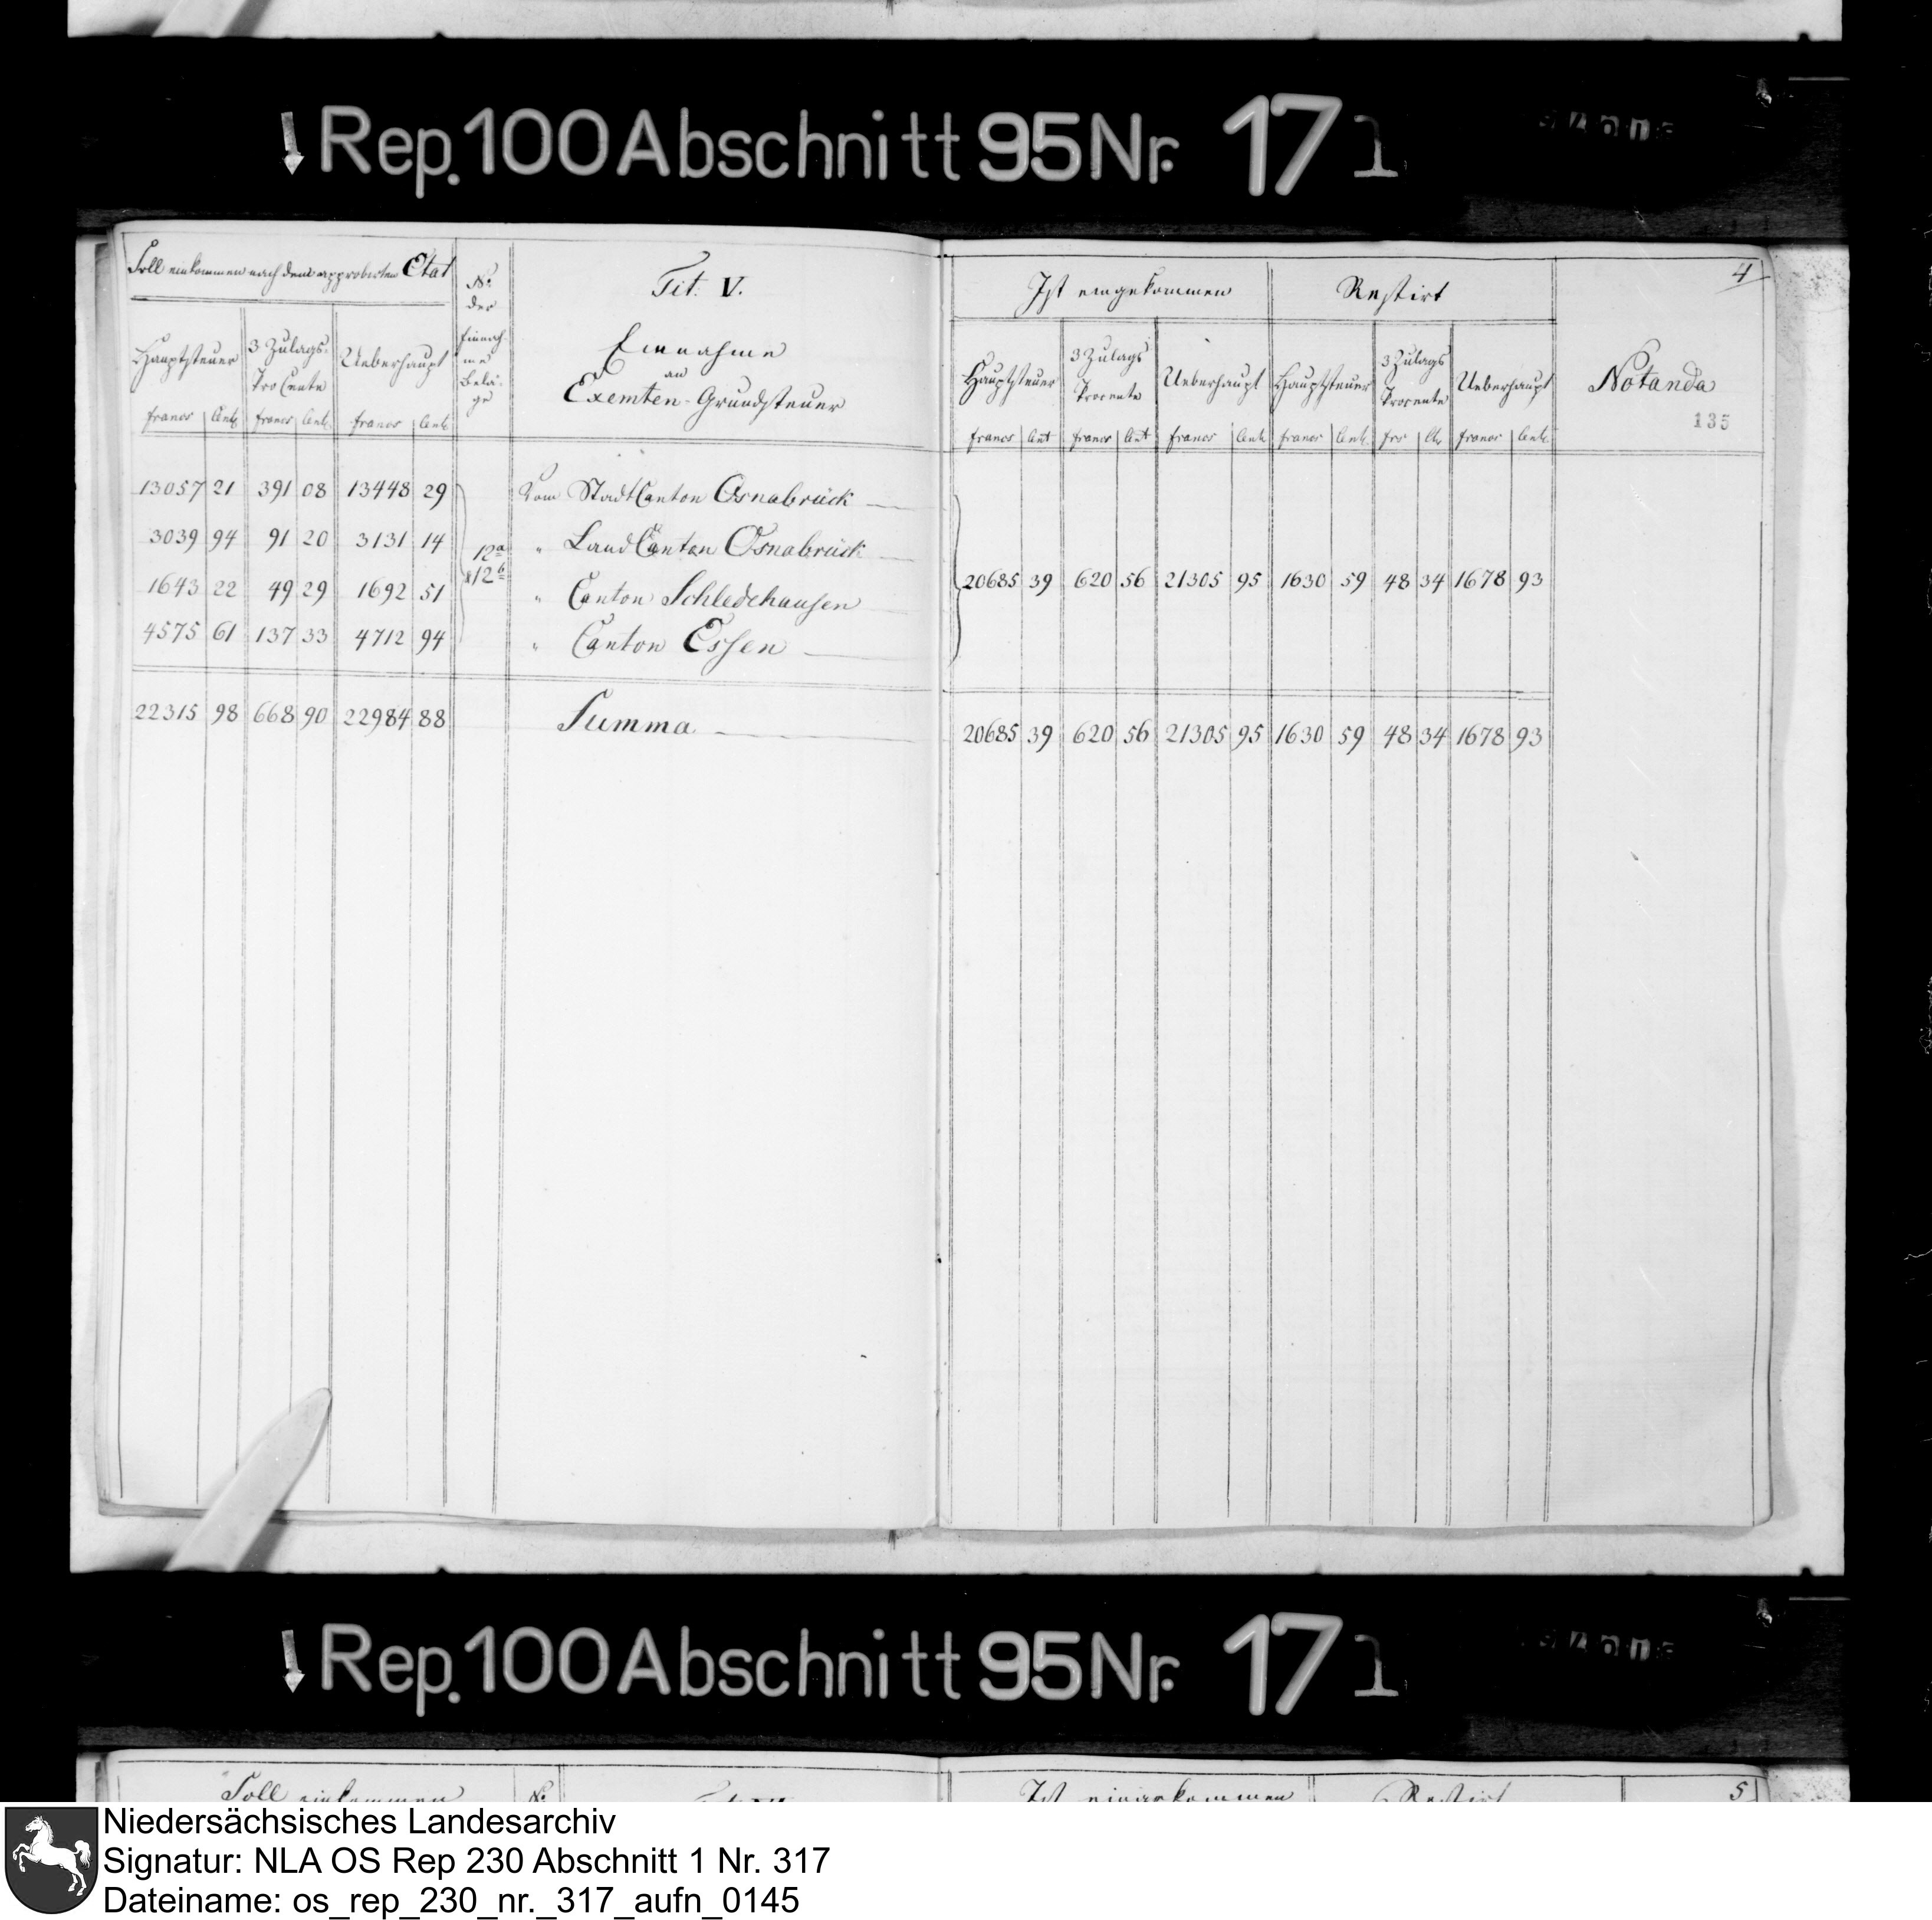 Rep. 100 Abschnitt 95 Nr. 171
Soll einkommen nach dem approbirten Etat
No.
der
Einnah-
me
Belä-
ge
Tit. V.
Einnahme
an
Exemten-Grundsteuer
Hauptsteuer 3 Zulags- Ueberhaupt
Pro Cente
francs Cent. francs Cent. francs Cent.
Ist eingekommen Restirt 4
Hauptsteuer 3 Zulags Procente Ueberhaupt Hauptsteuer 3 Zulags Procente Ueberhaupt Notanda
135
francs Cent francs Cent francs Cent francs Cent. frs Cts francs Cent.
13057 21 391 08 13448 29 Vom Stadt Canton Osnabrück
3039 94 91 20 3131 14 12a " Land Canton Osnabrück
1643 22 49 29 1692 51 &12b " Canton Schledehausen
20685 39 620 56 21305 95 1630 59 48 34 1678 93
4575 61 137 33 4712 94 " Canton Essen
22315 98 668 90 22984 88 Summa
20685 39 620 56 21305 95 1630 59 48 34 1678 93
Rep. 100 Abschnitt 95 Nr. 171
Soll einkommen No. Ist eingekommen Restirt 5
Niedersächsisches Landesarchiv
Signatur: NLA OS Rep 230 Abschnitt 1 Nr. 317
Dateiname: os_rep_230_nr._317_aufn_0145